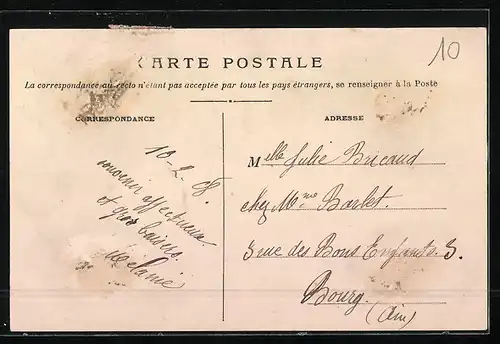 10
CARTE POSTALE
La correspondance au recto n'étant pas acceptée par tous les pays étrangers, se renseigner à la Poste
CORRESPONDANCE
18-2 08
souvenir affectueux
et gros baisers
Melanie
ADRESSE
Melle Julie Bricaud
chez Mme Barlet.
3 rue des Bons Enfants. 3.
Bourg.
(Ain)